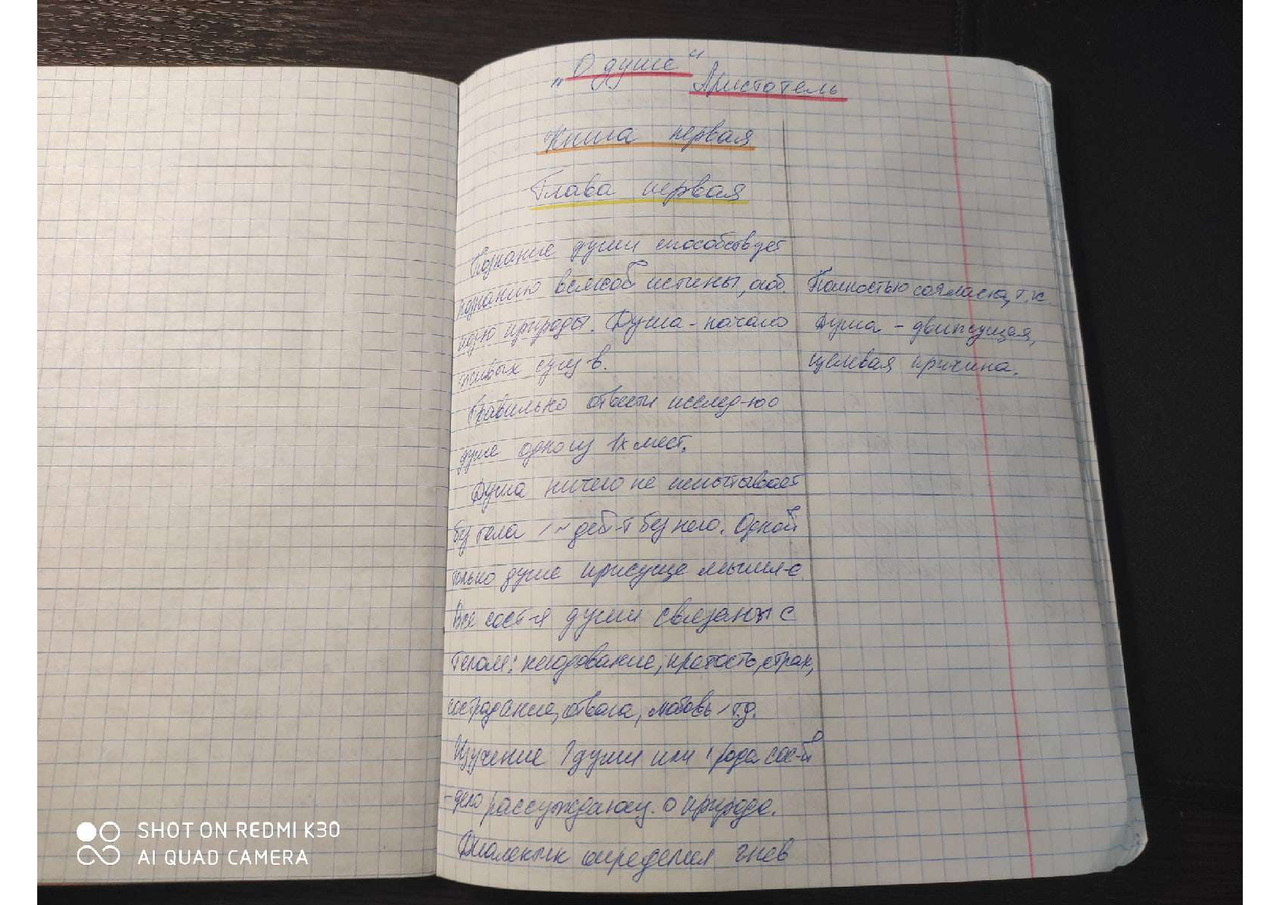 „О душе“
Аристотель
Книга первая
Глава первая
Познание души способствует
познанию всякой истины, особ.
познию природы. Душа - начало
живых сущ-в.
Правильно отвести исслед-ю о
душе одно из 1х мест.
Душа ничего не испытывает
без тела / ~ дей-т без него. Одной
только душе присуще мышл-е
Все сост-я души связаны с
телом: негодование, кротость, страх,
сострадание, отвага, любовь / т.д.
Изучение души или рода сос-й
- дело рассуждающ. о природе.
Диалектик определил гнев
Полностью согласна, т.к.
душа - движущая,
целевая причина.
SHOT ON REDMI K30
AI QUAD CAMERA